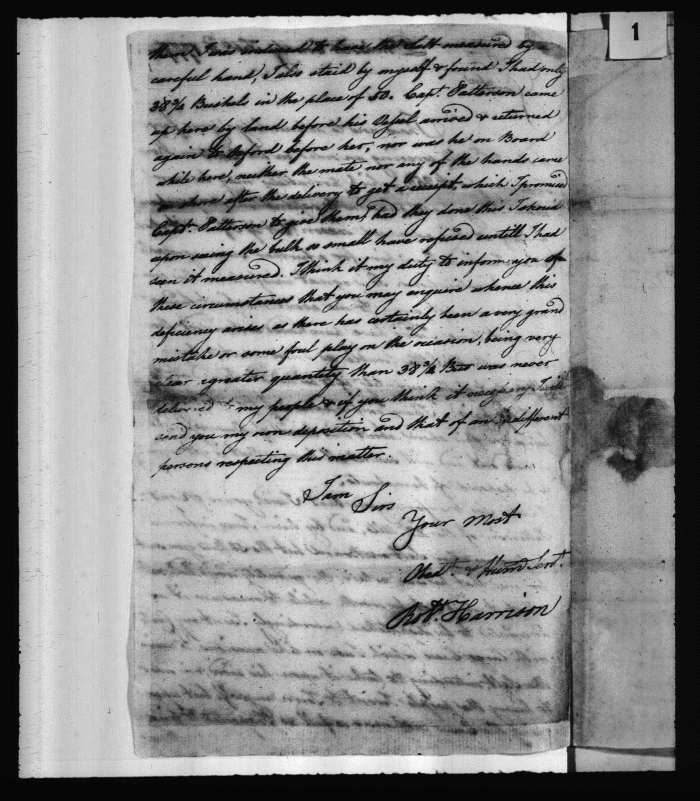 1
there I was induced to have the Salt measured by a
careful hand, I also staid by myself & found I had only
38¾ Bushels in the place of 50. Capt. Patterson came
up here by land before his Vessel arrived & returned
again to before her, nor was he on Board
while here, neither the mate nor any of the hands came
on shore after the delivery to get a receipt, which I promised
Capt. Patterson to give them, had they done this I should
upon seeing the bulk so small have refused untill I had
seen it measured. I think it my duty to inform you of
these circumstances that you may enquire whence this
deficiency arises as there has certainly been a very grand
mistake or some foul play on the occasion, being very
clear a greater quantity than 38¾ Bus was never
delivered to my people & if you think it necessary I will
send you my own deposition and that of an indifferent
persons respecting this matter.
I am
Sirs
Your Most
Obedt. & Hum Servt.
Robt. Harrison